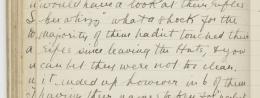 would have a look at their rifles
& breakers" what a shock for the
majority of them hadn't touched their
rifles since leaving the Huts, & you
can bet they were not too clean,
it ended up however in 6 of them
having their names